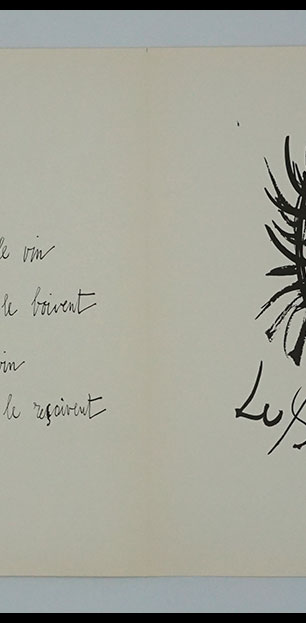 le vin
le boivent
vin
le reçoivent